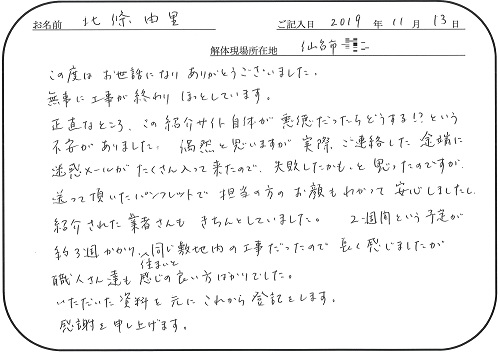 お名前 北條由里 ご記入日 2019 年 11 月 13 日
解体現場所在地 仙台市
この度はお世話になりありがとうございました。
無事に工事が終わりほっとしています。
正直なところ、この紹介サイト自体が悪徳だったらどうする!?という
不安がありました。偶然と思いますが実際、ご連絡した途端に
迷惑メールがたくさん入って来たので、失敗したかも、と思ったのですが、
送って頂いたパンフレットで担当の方のお顔もわかって安心しましたし、
紹介された業者さんもきちんとしていました。 2週間という予定が
約3週かかり、同じ敷地内の工事だったので長く感じましたが
住まいと
職人さん達も感じの良い方ばかりでした。
いただいた資料を元にこれから登記とします。
感謝を申し上げます。